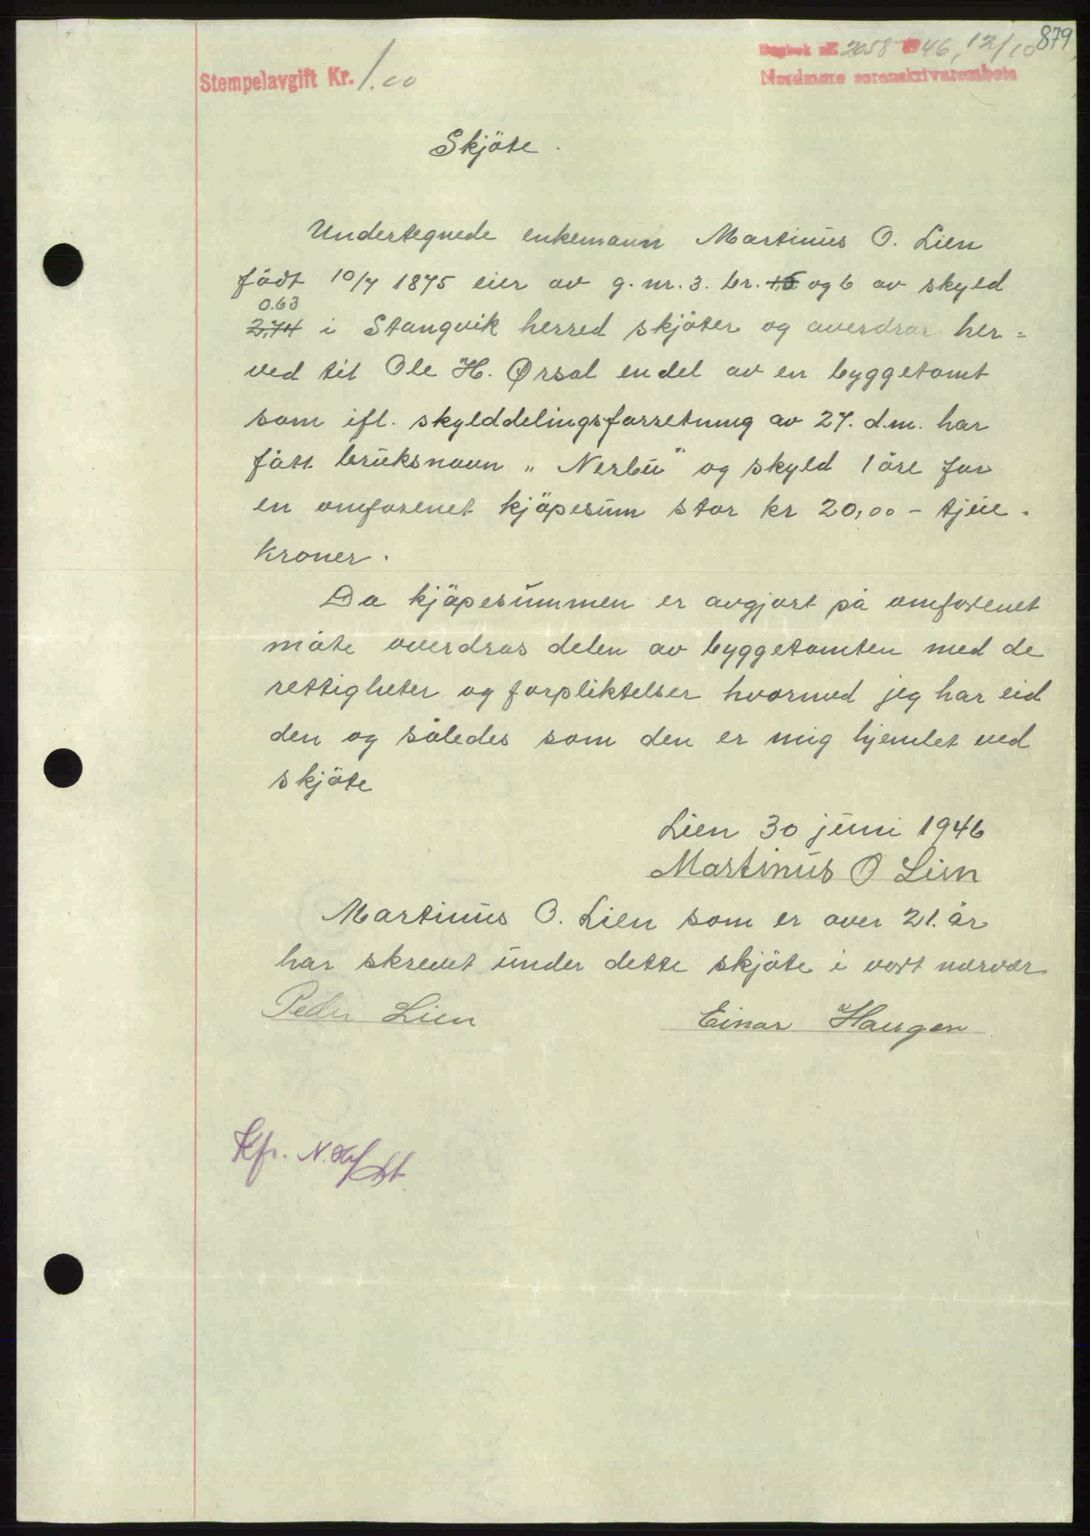 879
Dagbok nr. 2058 1946, 12/10
Stempelavgift Kr. 1.00
Nordmøre sorenskriverembete
Skjöte.
Undertegnede enkemann Martinus O. Lien
födt 10/7 1875 eier av g. nr. 3. br. 1.5 og 6 av skyld
0.63
2,74 i Stangvik herred skjöter og averdrar her=
ved til Ole H. Ørsal endel av en byggetomt
som ifl. skylddelingsforretning av 27. d.m. har
fått bruksnavn „Nerbu" og skyld 1 öre for
en omforenet kjöpesum stor kr 20,00 - tjue -
kroner.
Da kjöpesummen er avgjort på omforenet
måte overdras delen av byggetomten med de
rettigheter og forpliktelser hvormed jeg har eid
den og således som den er mig hjemlet ved
skjöte
Lien 30 juni 1946
Martinus O Lien
Martinus O. Lien som er over 21. år
har skrevet under dette skjöte i vort nærvær
Peder Lien Einar Haugen
Kfr. N.